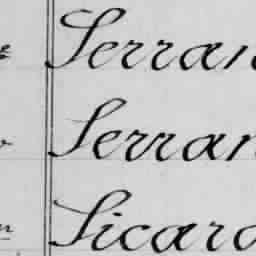 Serran
Serran
Sicard